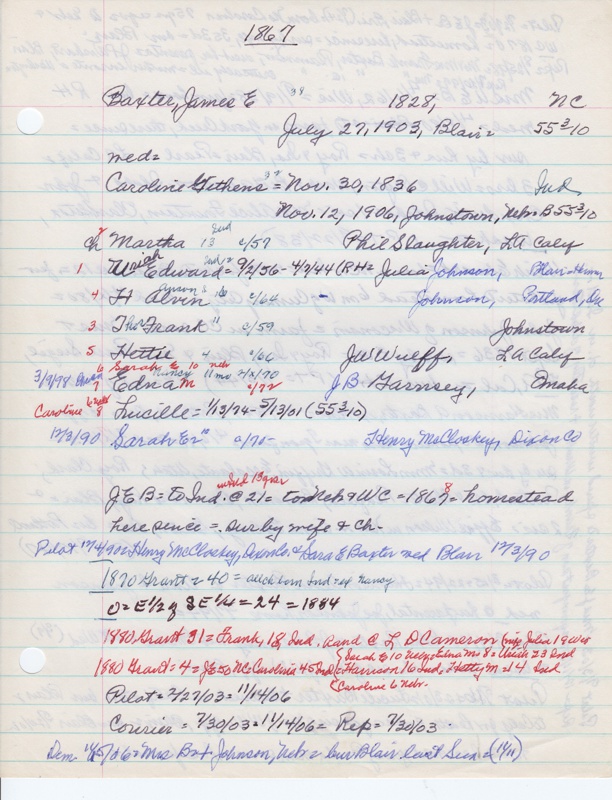 1867
Baxter, James E 39 1828, NC
July 27, 1903, Blair= 55 3/10
med=
Caroline Gethens 34 = Nov. 30, 1836 Ind
Nov. 12, 1906, Johnstown, Nebr B 55 3/10
ch Martha 13 Ind c/57 Phil Slaughter, LA Calif
1 Uriah Edward = 9/2/56 - 4/3/44 (RH= Julia Johnson, Blair
4 H Alvin c/64 - Johnson, Portland, Ore
3 Thos Frank 11 c/59 Johnstown
5 Hettie 4 c/66 JW Wulff, LA Calif
6 Sarah E 10 nebr
3/9/98 Nancy 11 mo 7/x/70
7 Edna M c/72 J.B. Garnsey, Omaha
Caroline 6 nebr 8 Lucille = 1/13/74 - 5/13/01 (55 3/10)
12/3/90 Sarah E c/70- Henry McCloskey, Dixon Co
J E B = to Ind. @ 21 = to Neb & WC = 1867 8 = homestead
here since = Sur by wife & ch-
Pilot 12/4/90 = Henry McCloskey, & Sara E Baxter med Blair 12/3/90
1870 Grant = 40 = all ch born Ind ex Nancy
O = E 1/2 of SE 1/4 = 24 = 1884
1880 Grant 31 = Frank, 18, Ind. R and C L D Cameron (wife Julia 19 Wis
Sarah E 10 Neb Edna M 8 = Uriah 23 Ind
1880 Grant = 4 = JE 50 NC Caroline 45 Ind Harrison 16 Ind, Hetty M = 14 Ind
Caroline 6 Nebr.
Pilot = 2/27/03 = 11/14/06
Courier = 7/30/03 = 11/14/06 = Rep = 7/30/03.
Dem 11/15/06 = Mrs Bxt Johnson, Neb = bur Blair last Sun = (11/11)